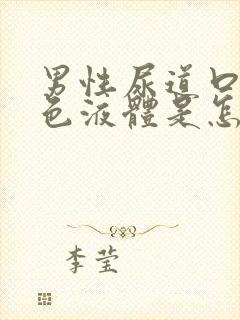 男性尿道口
色液體是怎
李莹